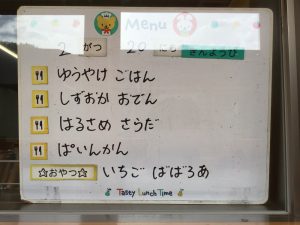 Menu
2 がつ 20 にち きんようび
ゆうやけ ごはん
しずおか おでん
はるさめ さらだ
ぱいんかん
☆おやつ☆ いちご ばばろあ
Tasty Lunch Time